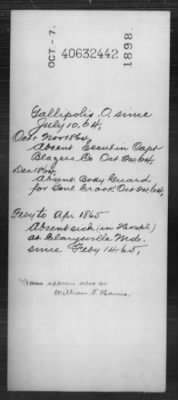 OCT - 7.
40632442
1898.
Gallipolis. O. since
July 10, 64,
Oct & Nov 1864,
Absent Scout in Capt
Blazers Co Oct 24, 64,
Dec 1864,
Absent, Body Guard
for Genl Crook Oct 24, 64,
Feby to Apr 1865
Absent sick (in Hospl)
at Clarysville Md.
since Feby 14, 65,
Name appears also as
William E. Harris.